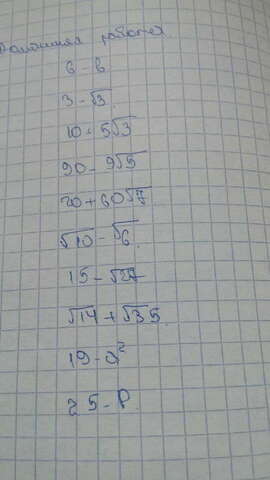 Домашняя работа
в - в
3 - √3
10 - 5√3
90 - 9√5
20 + 60√7
√10 - √6
15 - √27
√14 + √35
19 - a²
25 - P